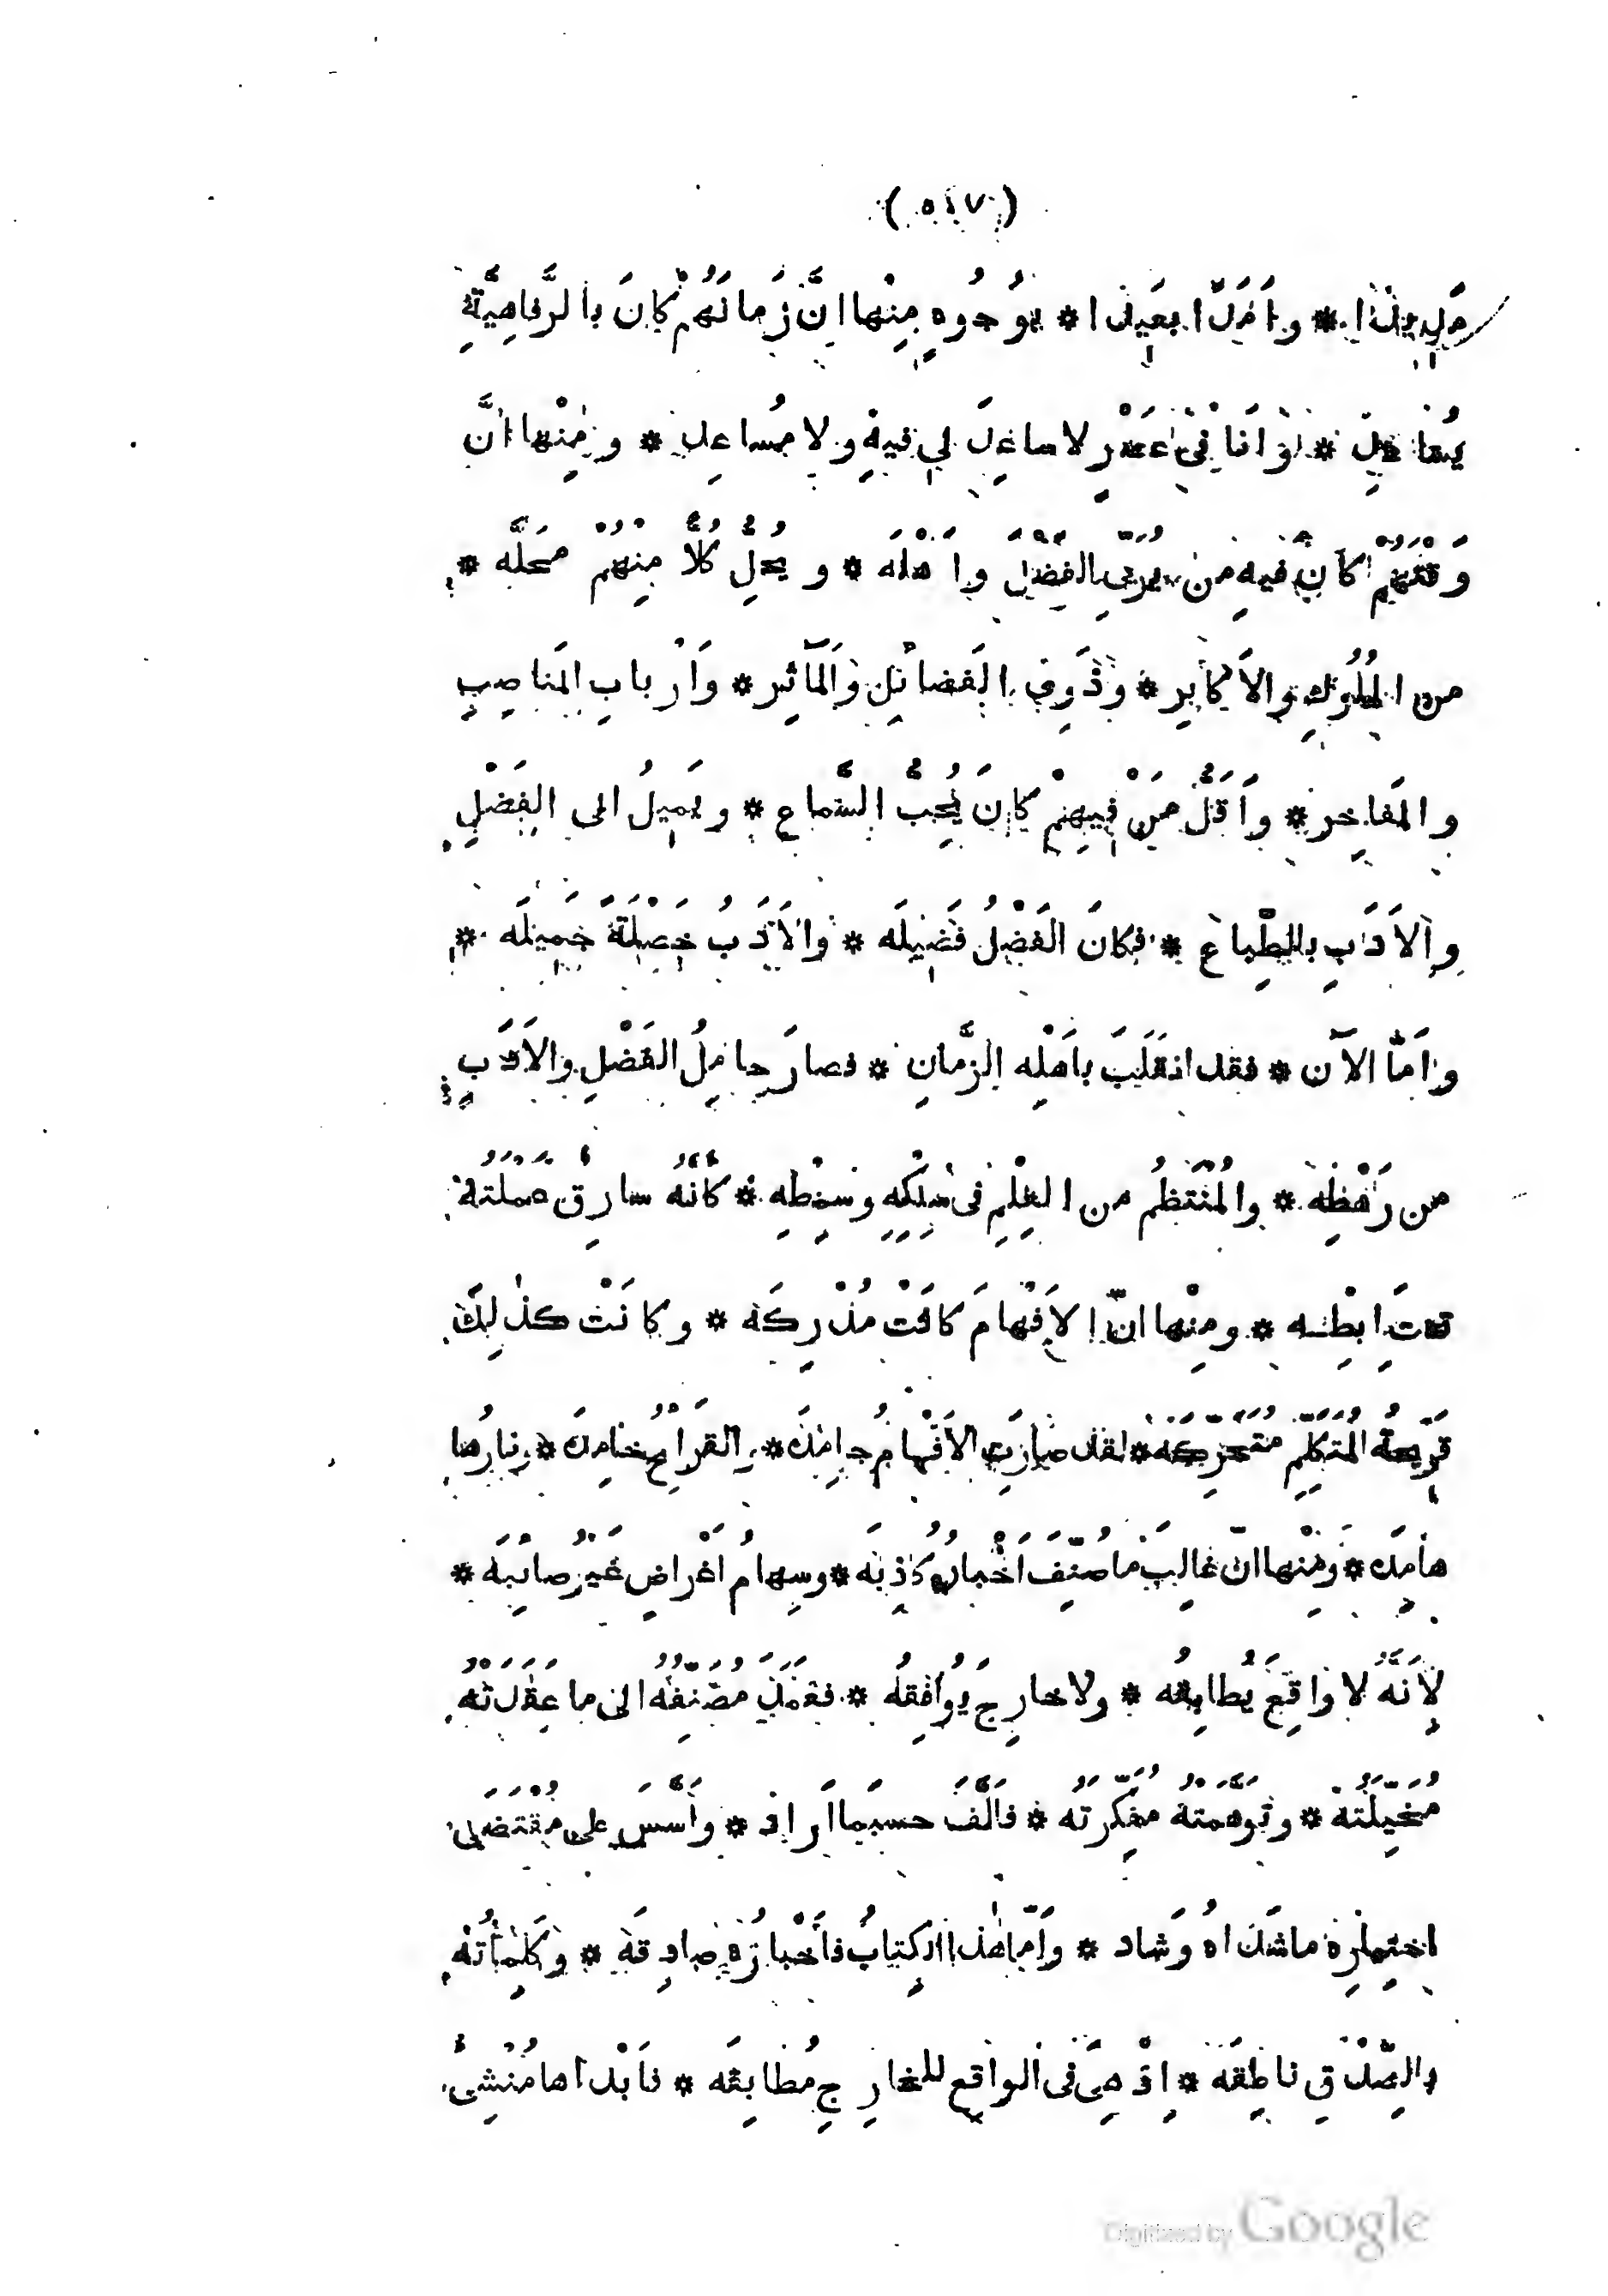 (٥١٧)
مَدِيدًا * وَاَمَدًا بَعِيدًا * بِوُجُوهٍ مِنْها انَّ زَمانَهُمْ كانَ بالرَّفاهِيَّةِ
يُعاضِدُ * وَانا فى عَصْرٍ لا ساعِدَ لى فيهِ ولا مُساعِد * ومِنْها انَّ
وَقْتَهُمْ كانَ فيهِ من يُرَبّى الفَضْلَ واَهْلَه * ويُحِلُّ كُلًّا مِنْهُمْ مَحَلَّه *
من المُلُوكِ والاَكابِر * وذَوِى الفَضائِلِ والمَآثِر * وَاَرْبابِ المَناصِبِ
والمَفاخِر * واَقَلُّ مَنْ فِيهِمْ كانَ يُحِبُّ السَّماع * ويَمِيلُ الى الفَضْلِ
والاَدَبِ بالطِّباع * فكانَ الفَضْلُ فَضِيلَه * والاَدَبُ خَصْلَةً جَمِيلَه *
واَمَّا الآن * فقد انقَلَبَ باَهْلِه الزَّمان * فصارَ حامِلُ الفَضْلِ والاَدَبِ
من رَهْطِه * والمُنْتَظِمُ من العِلْمِ فى سِلْكِه وسِمْطِه * كاَنَّهُ سارِقٌ حَمَلَتْهُ
تحتَ اِبْطِه * ومِنْها انّ الاَفْهامَ كانَتْ مُدْرِكَه * وكانَتْ كذٰلِكَ
قَرِيحةُ المُتَكلِّمِ مُتَحَرِّكه * لقد صارَتِ الاَفْهامُ جامِدَه * والقَرائحُ خامِدَه * ونارُها
هامِدَه * ومِنْها انّ غالِبَ ما صُنِّفَ اَخْبارُهُ كاذِبَه * وسِهامُ اَغْراضٍ غَيْرُ صائبَه *
لِاَنَّهُ لا واقِعَ يُطابِقُه * ولا خارِجَ يُوافِقُه * فعَمَدَ مُصَنِّفُهُ الى ما عَقَدَتْهُ
مُخَيِّلَتُه * وتَوَهَّمَتْهُ مُفَكِّرَتُه * فاَلَّفَ حسبَما اَراد * واَسَّسَ على مُقْتَضَى
اختِيارِهِ ما شَدَاهُ وَشاد * واَمّا هٰذا الكِتابُ فاَخْبارُهُ صادِقَه * وكَلِماتُهُ
بالصِّدْقِ ناطِقَه * اِذْ هِىَ فى الواقعِ للخارِجِ مُطابِقَه * فاَبْداها مُنْشِئُ
Digitized by Google